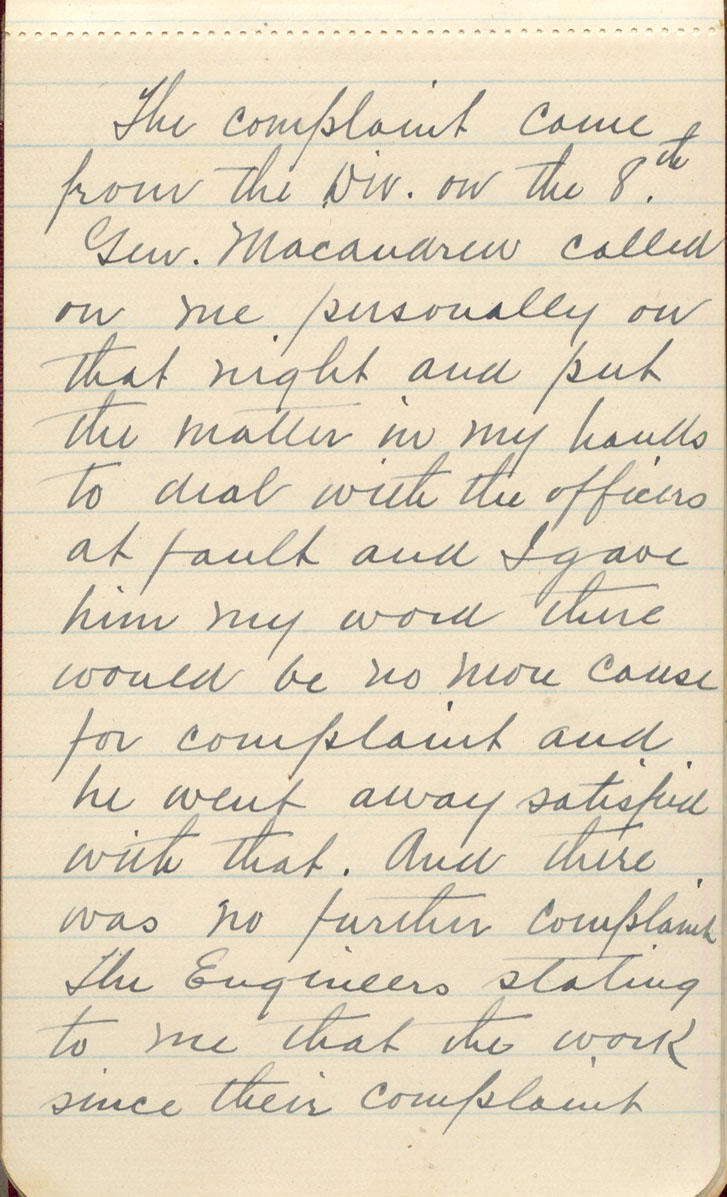 The complaint came
from the Div. on the 8.th
Gen. Macandrew called
on me personally on
that night and put
the matter in my hands
to deal with the officers
at fault and I gave
him my word there
would be no more cause
for complaint and
he went away satisfied
with that. And there
was no further complaint
The Engineers stating
to me that the work
since their complaint